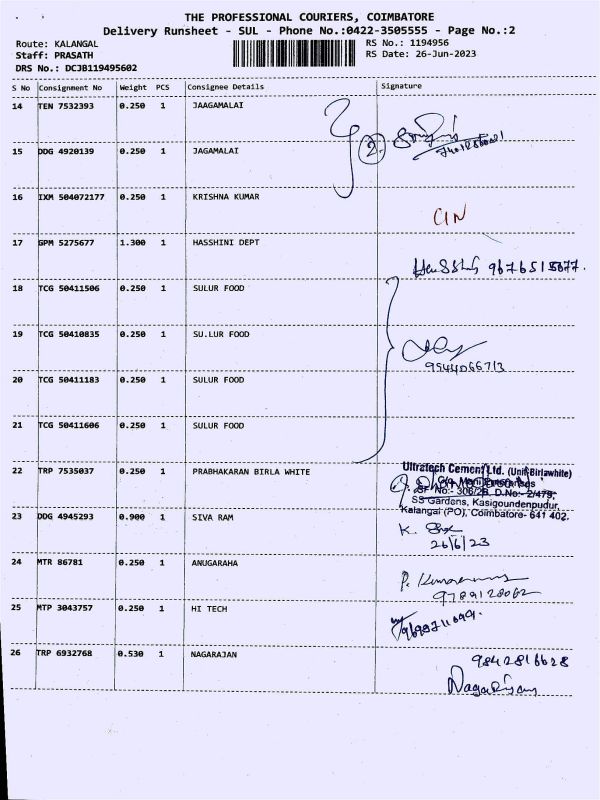 THE PROFESSIONAL COURIERS, COIMBATORE
Delivery Runsheet - SUL - Phone No.:0422-3505555 - Page No.:2
Route: KALANGAL
RS No.: 1194956
Staff: PRASATH
RS Date: 26-Jun-2023
DRS No.: DCJB119495602
S No Consignment No Weight PCS Consignee Details Signature
14 TEN 7532393 0.250 1 JAAGAMALAI
2.
15 DDG 4920139 0.250 1 JAGAMALAI
16 IXM 504072177 0.250 1 KRISHNA KUMAR
CIN
17 GPM 5275677 1.300 1 HASSHINI DEPT
18 TCG 50411506 0.250 1 SULUR FOOD
19 TCG 50410835 0.250 1 SU.LUR FOOD
9944066713
20 TCG 50411183 0.250 1 SULUR FOOD
21 TCG 50411606 0.250 1 SULUR FOOD
22 TRP 7535037 0.250 1 PRABHAKARAN BIRLA WHITE
Ultratech Cement Ltd. (Unit Birlawhite)
SF No:- 306/2B, D.No:- 2/479,
SS Gardens, Kasigoundenpudur,
Kalangal (PO), Coimbatore- 641 402.
23 DDG 4945293 0.900 1 SIVA RAM
K.
26/6/23
24 MTR 86781 0.250 1 ANUGARAHA
P.
9789128062
25 MTP 3043757 0.250 1 HI TECH
26 TRP 6932768 0.530 1 NAGARAJAN
9842816628